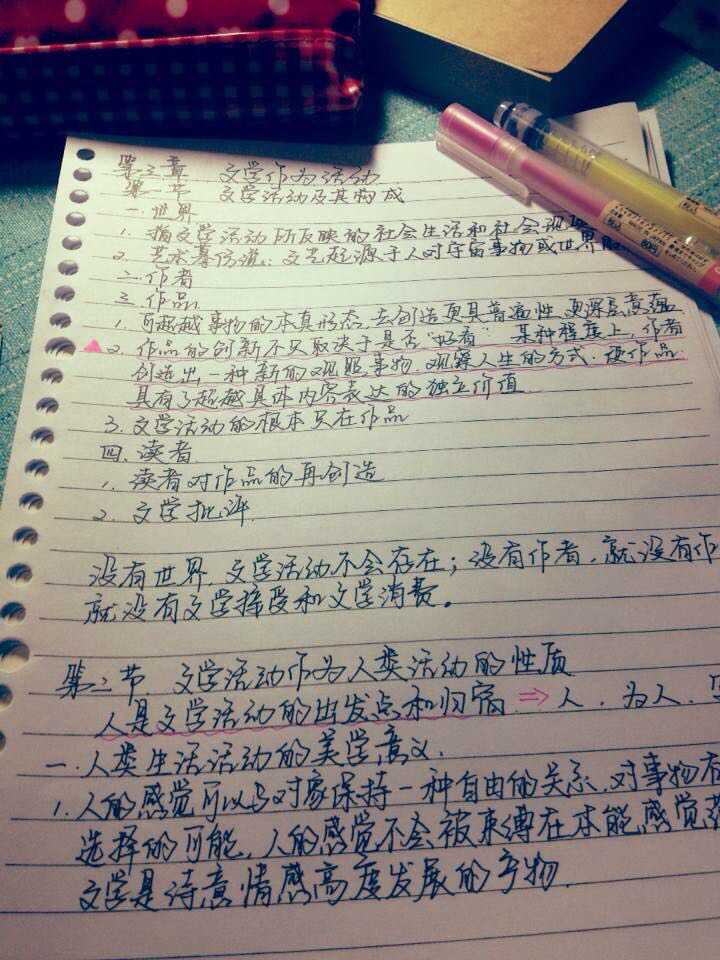 第三章 文学作为活动
第一节 文学活动及其构成
一.世界
1. 指文学活动所反映的社会生活和社会现
2. 艺术事仿说:文艺起源于人对宇宙事物或世界
二.作者
三.作品
1. 可超越事物的本真形态,去创造更具普遍性、更深层意蕴
2. 作品的创新不只取决于是否"好看" 某种程度上,作者
创造出一种新的观照事物、观察人生的方式,使作品
具有了超越具体内容表达的独立价值
3. 文学活动的根本只在作品
四.读者
1. 读者对作品的再创造
2. 文学批评
没有世界,文学活动不会存在;没有作者,就没有作
就没有文学接受和文学消费。
第二节 文学活动作为人类活动的性质
人是文学活动的出发点和归宿 ⇒ 人,为人,
一.人类生活活动的美学意义.
1. 人的感觉可以与对象保持一种自由的关系,对事物有
选择的可能,人的感觉不会被束缚在本能感觉
文学是诗意情感高度发展的产物